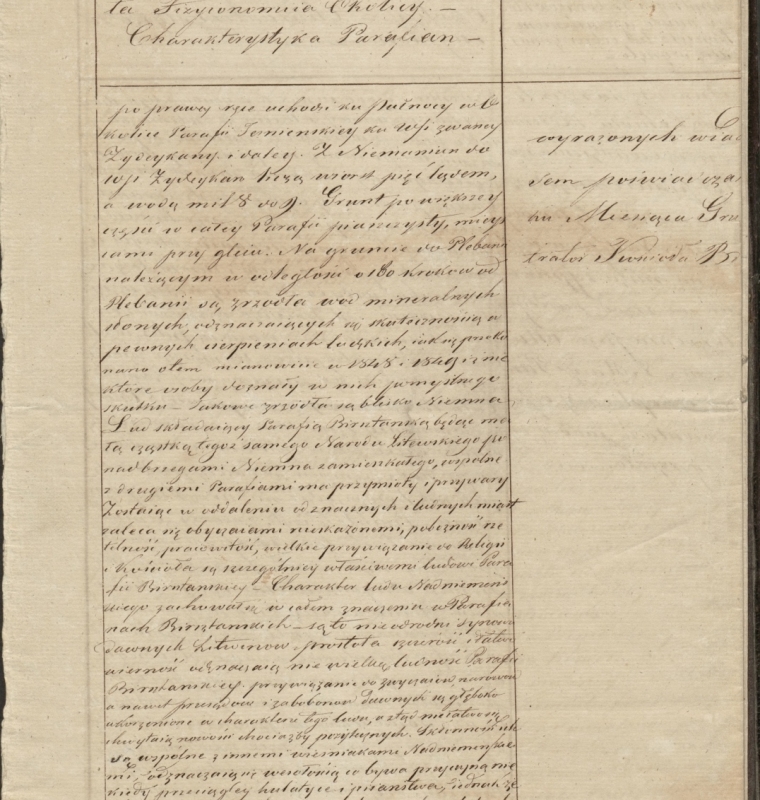 ta Fizyonomia Okolicy. –
Charakterystyka Parafian –
po prawey ręce uchodzi ku Północy w O
kolice Parafii Jeznienskiey ku Wsi zwaney
Żydeykany i daley. Z Niemaniun do
Wsi Żydeykan liczą wiorst pięć lądem,
a wodą mil 8 do 9. Grunt po większey
części w całey Parafii piaszczysty, mieys
cami przy glein. Na gruncie do Plebanii
należącym w odległości o 160 kroków od
Plebanii są zrzódła wod mineralnych
słonych, odznaczaiących się skutecznością w
pewnych cierpieniach ludzkich, iak się przeko
nano o tem mianowicie w 1848 i 1849 i
które osoby doznały w nich pomyslnego
skutku – Jakowe zrzódła są blisko Niemna
Lud składaiący Parafią Birsztańską będąc ma
łą cząstką tegoż samego Narodu Litewskiego po
nad brzegami Niemna zamieszkałego, wspólne
z drugiemi Parafiami ma przymioty i przywary
Zostaiąc w oddaleniu od znacznych i ludnych miast
zaleca się obyczaiami nieskażonemi, pobożność rze
telność, pracowitość, wielkie przywiązanie do Religii
i Kościoła są szczególniey właściwemi ludowi Para
fii Birsztanskiey – Charakter ludu Nadniemeńs
kiego zachował się w całem znaczeniu w Parafia
nach Birsztanskich – są to nieodrodni synowie
dawnych Litwinów, prostota szczerość i stała
wierność odznaczaią nie wielką ludność Parafii
Birsztanskiey. przywiązanie do zwyczaiów, narowów
a nawet przesądów i zabobonów dawnych są głęboko
ukorzenione w charakterze tego ludu, a ztąd nie łatwo się
chwytaią nowości chociażby pożytecznych. Skłonność ich
są wspólne z innemi wieśniakami Nadniemeńskie
mi, odznaczaią się wesołością co bywa przyczyną nie
kiedy przeciągłey hulatyce i pianstwa, iednak że
wyrażonych wia
dem poświadcza
ku Miesiąca Gru
trator Kościoła Bi